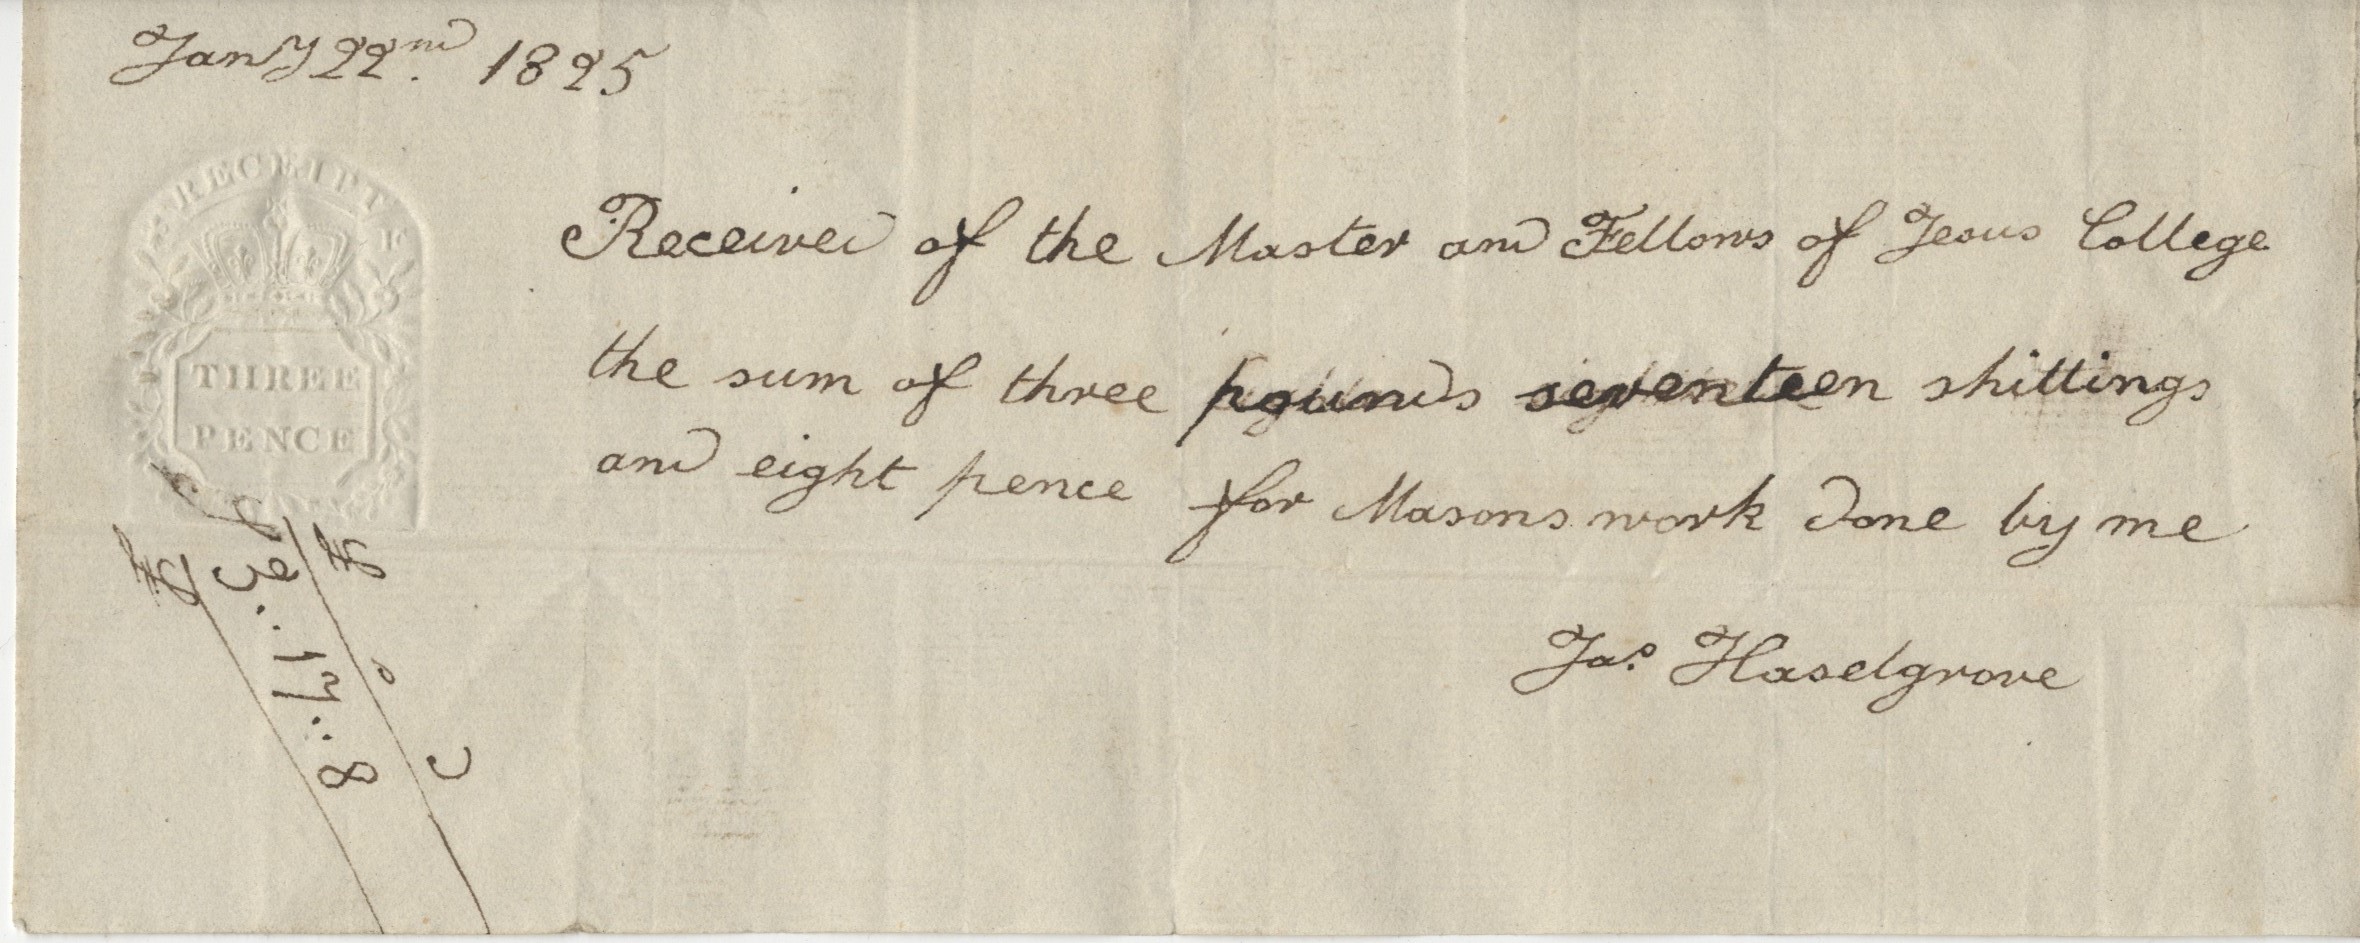 Jany 22nd. 1825
RECEIPT
THREE
PENCE
Received of the Master and Fellows of Jesus College
the sum of three pounds seventeen shillings
and eight pence for Masons work done by me
Jas. Haselgrove
£ s d
£ 3..17..8